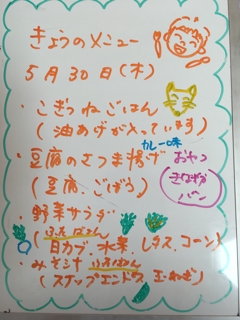 きょうのメニュー
5月30日(木)
・こぎつねごはん
(油あげが入っています)
カレー味
・豆腐のさつま揚げ
(豆腐、ごぼう)
おやつ
きなこ
パン
・野菜サラダ
(ふそばさん
白カブ、水菜、レタス、コーン)
・みそ汁
(スナップエンドウ、玉ねぎ)